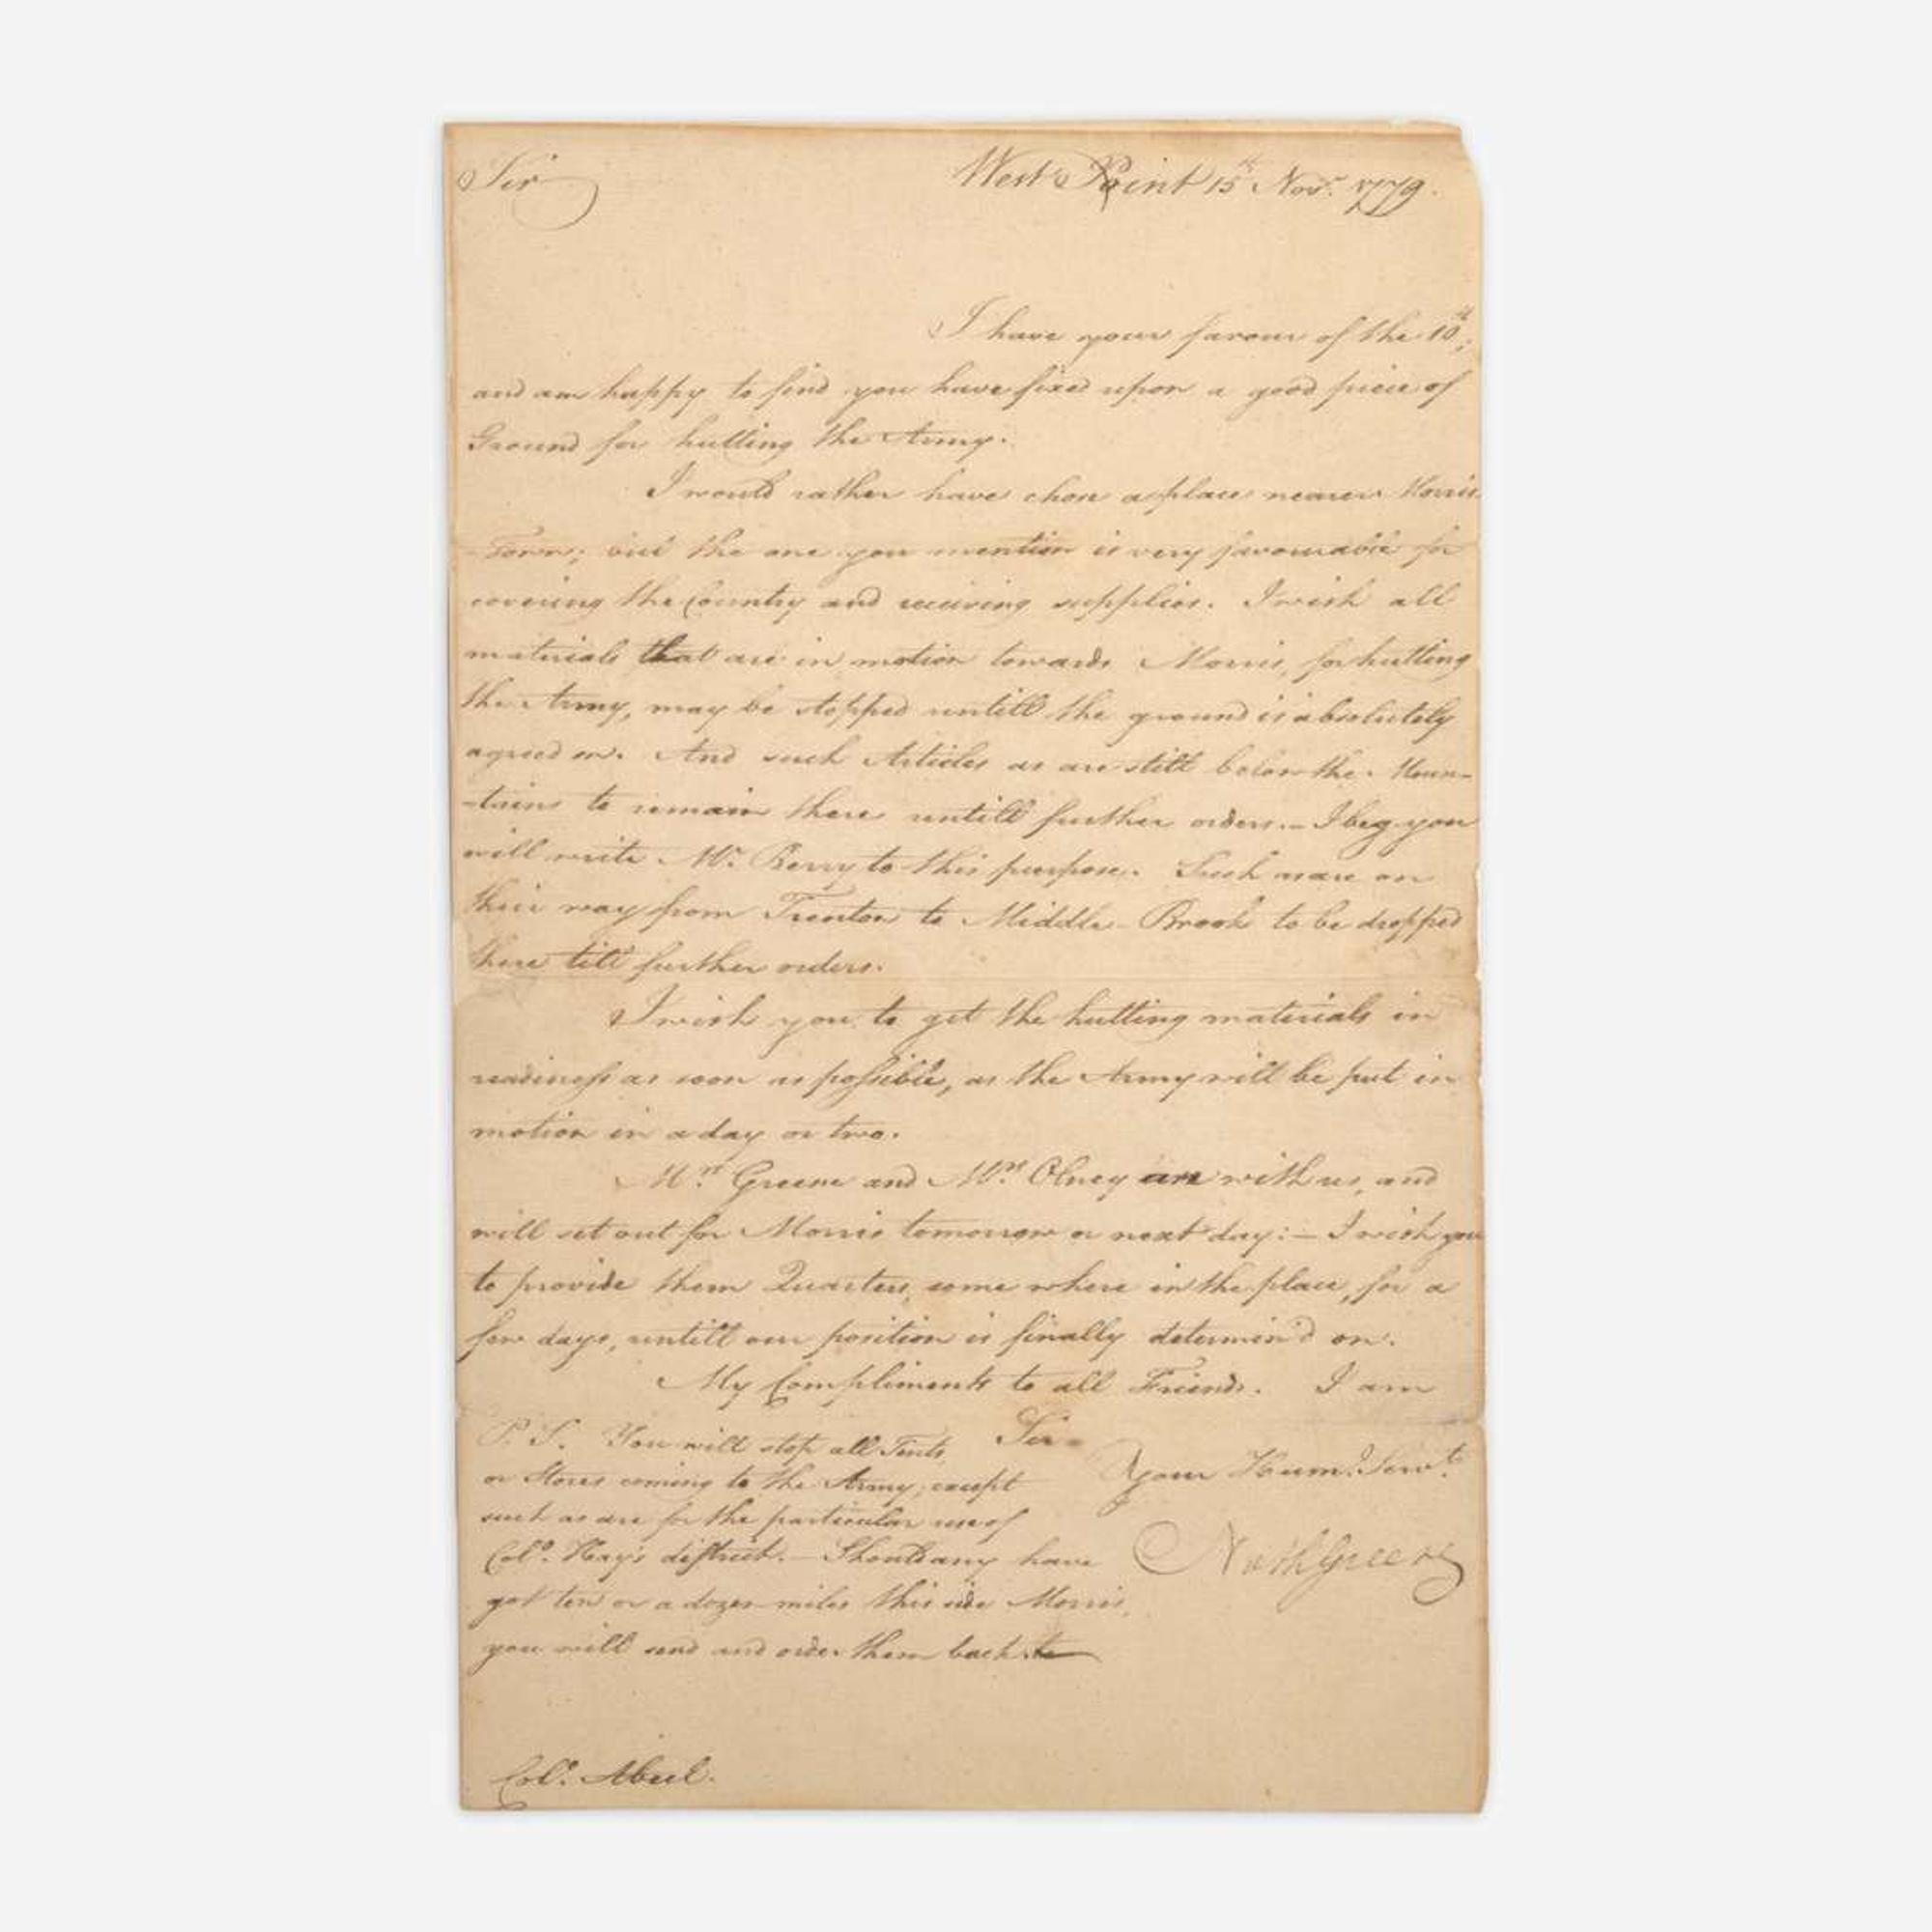 Sir
West Point 15th Novr. 1779.
I have your favour of the 10th;
and am happy to find you have fixed upon a good piece of
Ground for hutting the Army.
I would rather have chose a place nearer Morris
-Town; but the one you mention is very favourable for
covering the Country and receiving supplies. I wish all
materials that are in motion towards Morris, for hutting
the Army, may be stopped untill the ground is absolutely
agreed on. And such Articles as are still below the Moun-
-tains to remain there untill further orders.- I beg you
will write Mr. Berry to this purpose. Such as are on
their way from Trenton to Middle-Brook to be dropped
there till further orders.
I wish you to get the hutting materials in
readiness as soon as possible, as the Army will be put in
motion in a day or two.
Mrs. Greene and Mrs. Olney are with us, and
will set out for Morris tomorrow or next day:- I wish you
to provide them Quarters, some where in the place, for a
few days, untill our position is finally determin'd on.
My Compliments to all Friends. I am
Sir
Your Hum. Servt.
Nath Greene
P. S. You will stop all Tents,
or Stores coming to the Army, except
such as are for the particular use of
Colo. Hay's district.- Should any have
got ten or a dozen miles this side Morris,
you will send and order them back. to
Colo. Abeel.